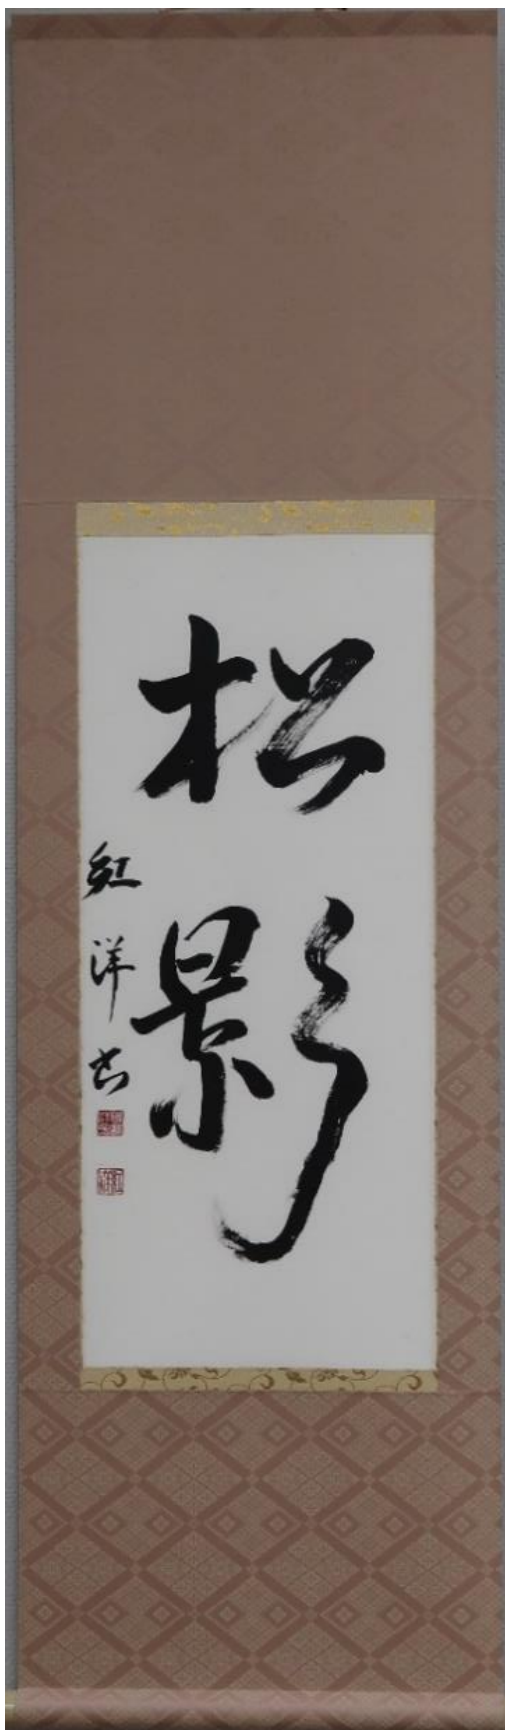 松影
紅洋書